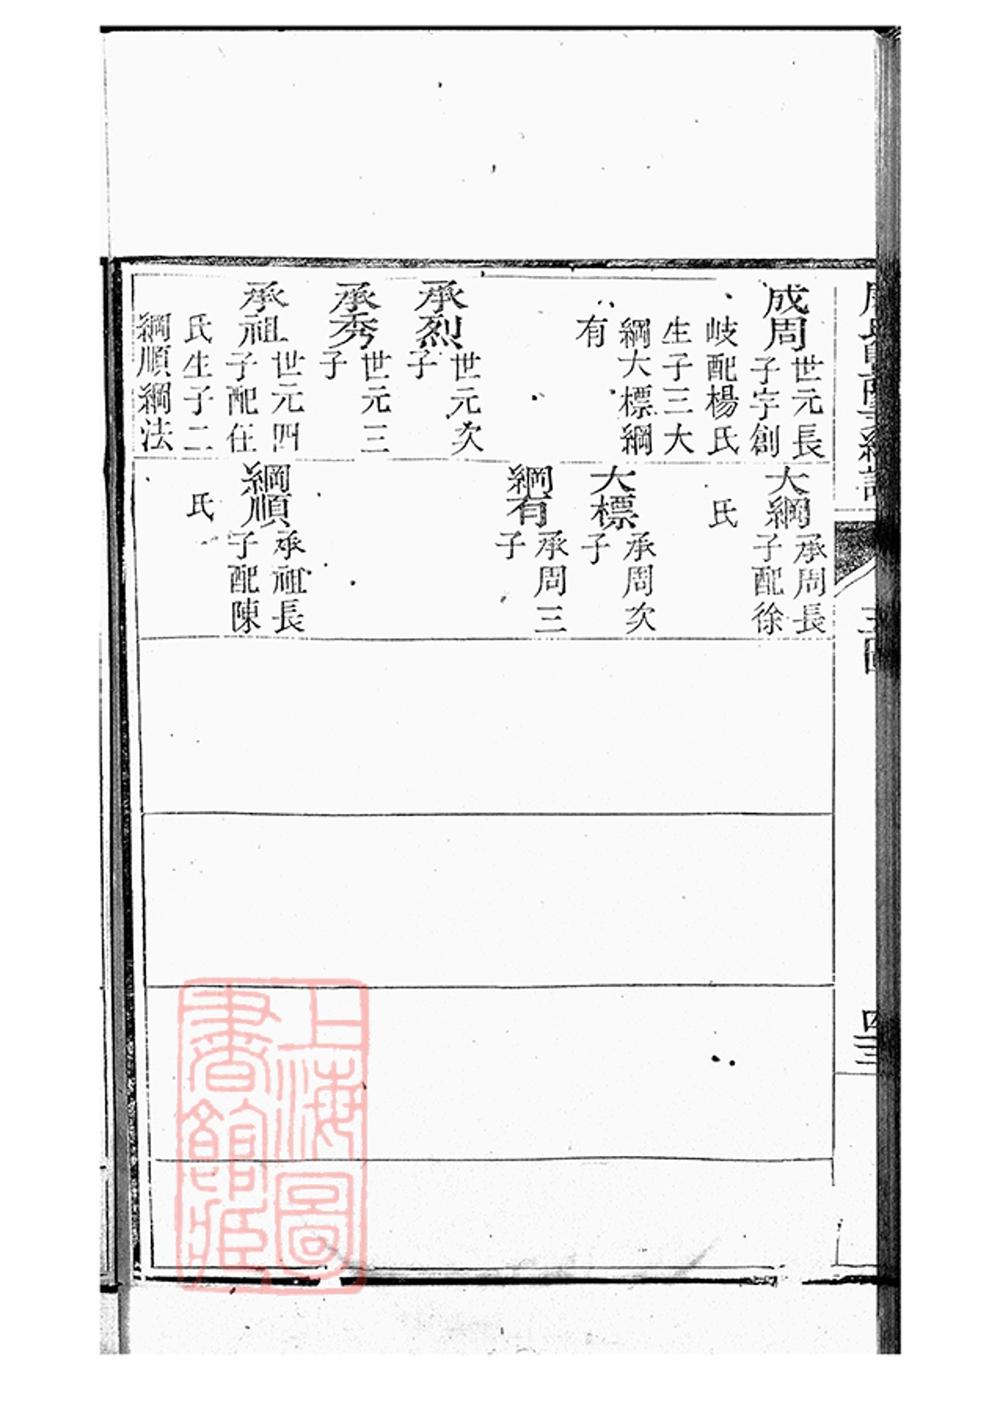 成周
世元長
子字創
岐配楊氏
生子三大
綱大標綱
有
承烈
世元次
子
承秀
世元三
子
承祖
世元四
子配任
氏生子二
綱順綱法
大綱
承周長
子配徐
氏
大標
承周次
子
綱有
承周三
子
綱順
承祖長
子配陳
氏
四三
上海圖
書館藏